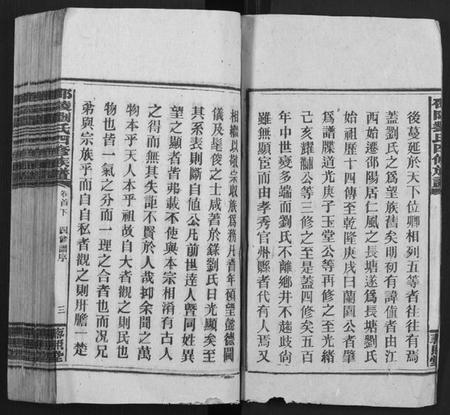 後蔓延於天下位卿相列五等者往往有焉
蓋劉氏之為望族舊矣明初有諱值者由江
西始遷邵陽居仁風之長塘遂為長塘劉氏
始祖歷十四傳至乾隆庚戌曰蘭園公者肇
為譜牒道光庚子玉堂公等再修之至光緒
己亥耀黼公等三修之至是蓋四修矣五百
年中世變多端而劉氏不離鄉井不趨歧尚
雖無顯宦而由孝秀官州縣者代有人焉又
相繼以敬宗收族為務凡耆年碩望懿德閫
儀及髦俊之士咸著於錄劉氏日光顯矣至
其系表則斷自值公凡前世達人暨同姓異
望之顯者皆弗載不使與本宗相淆有古人
之得而無其失詎不賢於人哉抑余聞之萬
物本乎天人本乎祖故自大者觀之則民也
物也皆一氣之分而一理之合者也而況兄
弟與宗族乎而自自私者觀之則肝膽一楚
邵陵劉氏四修族譜
卷首下
四修譜序
三